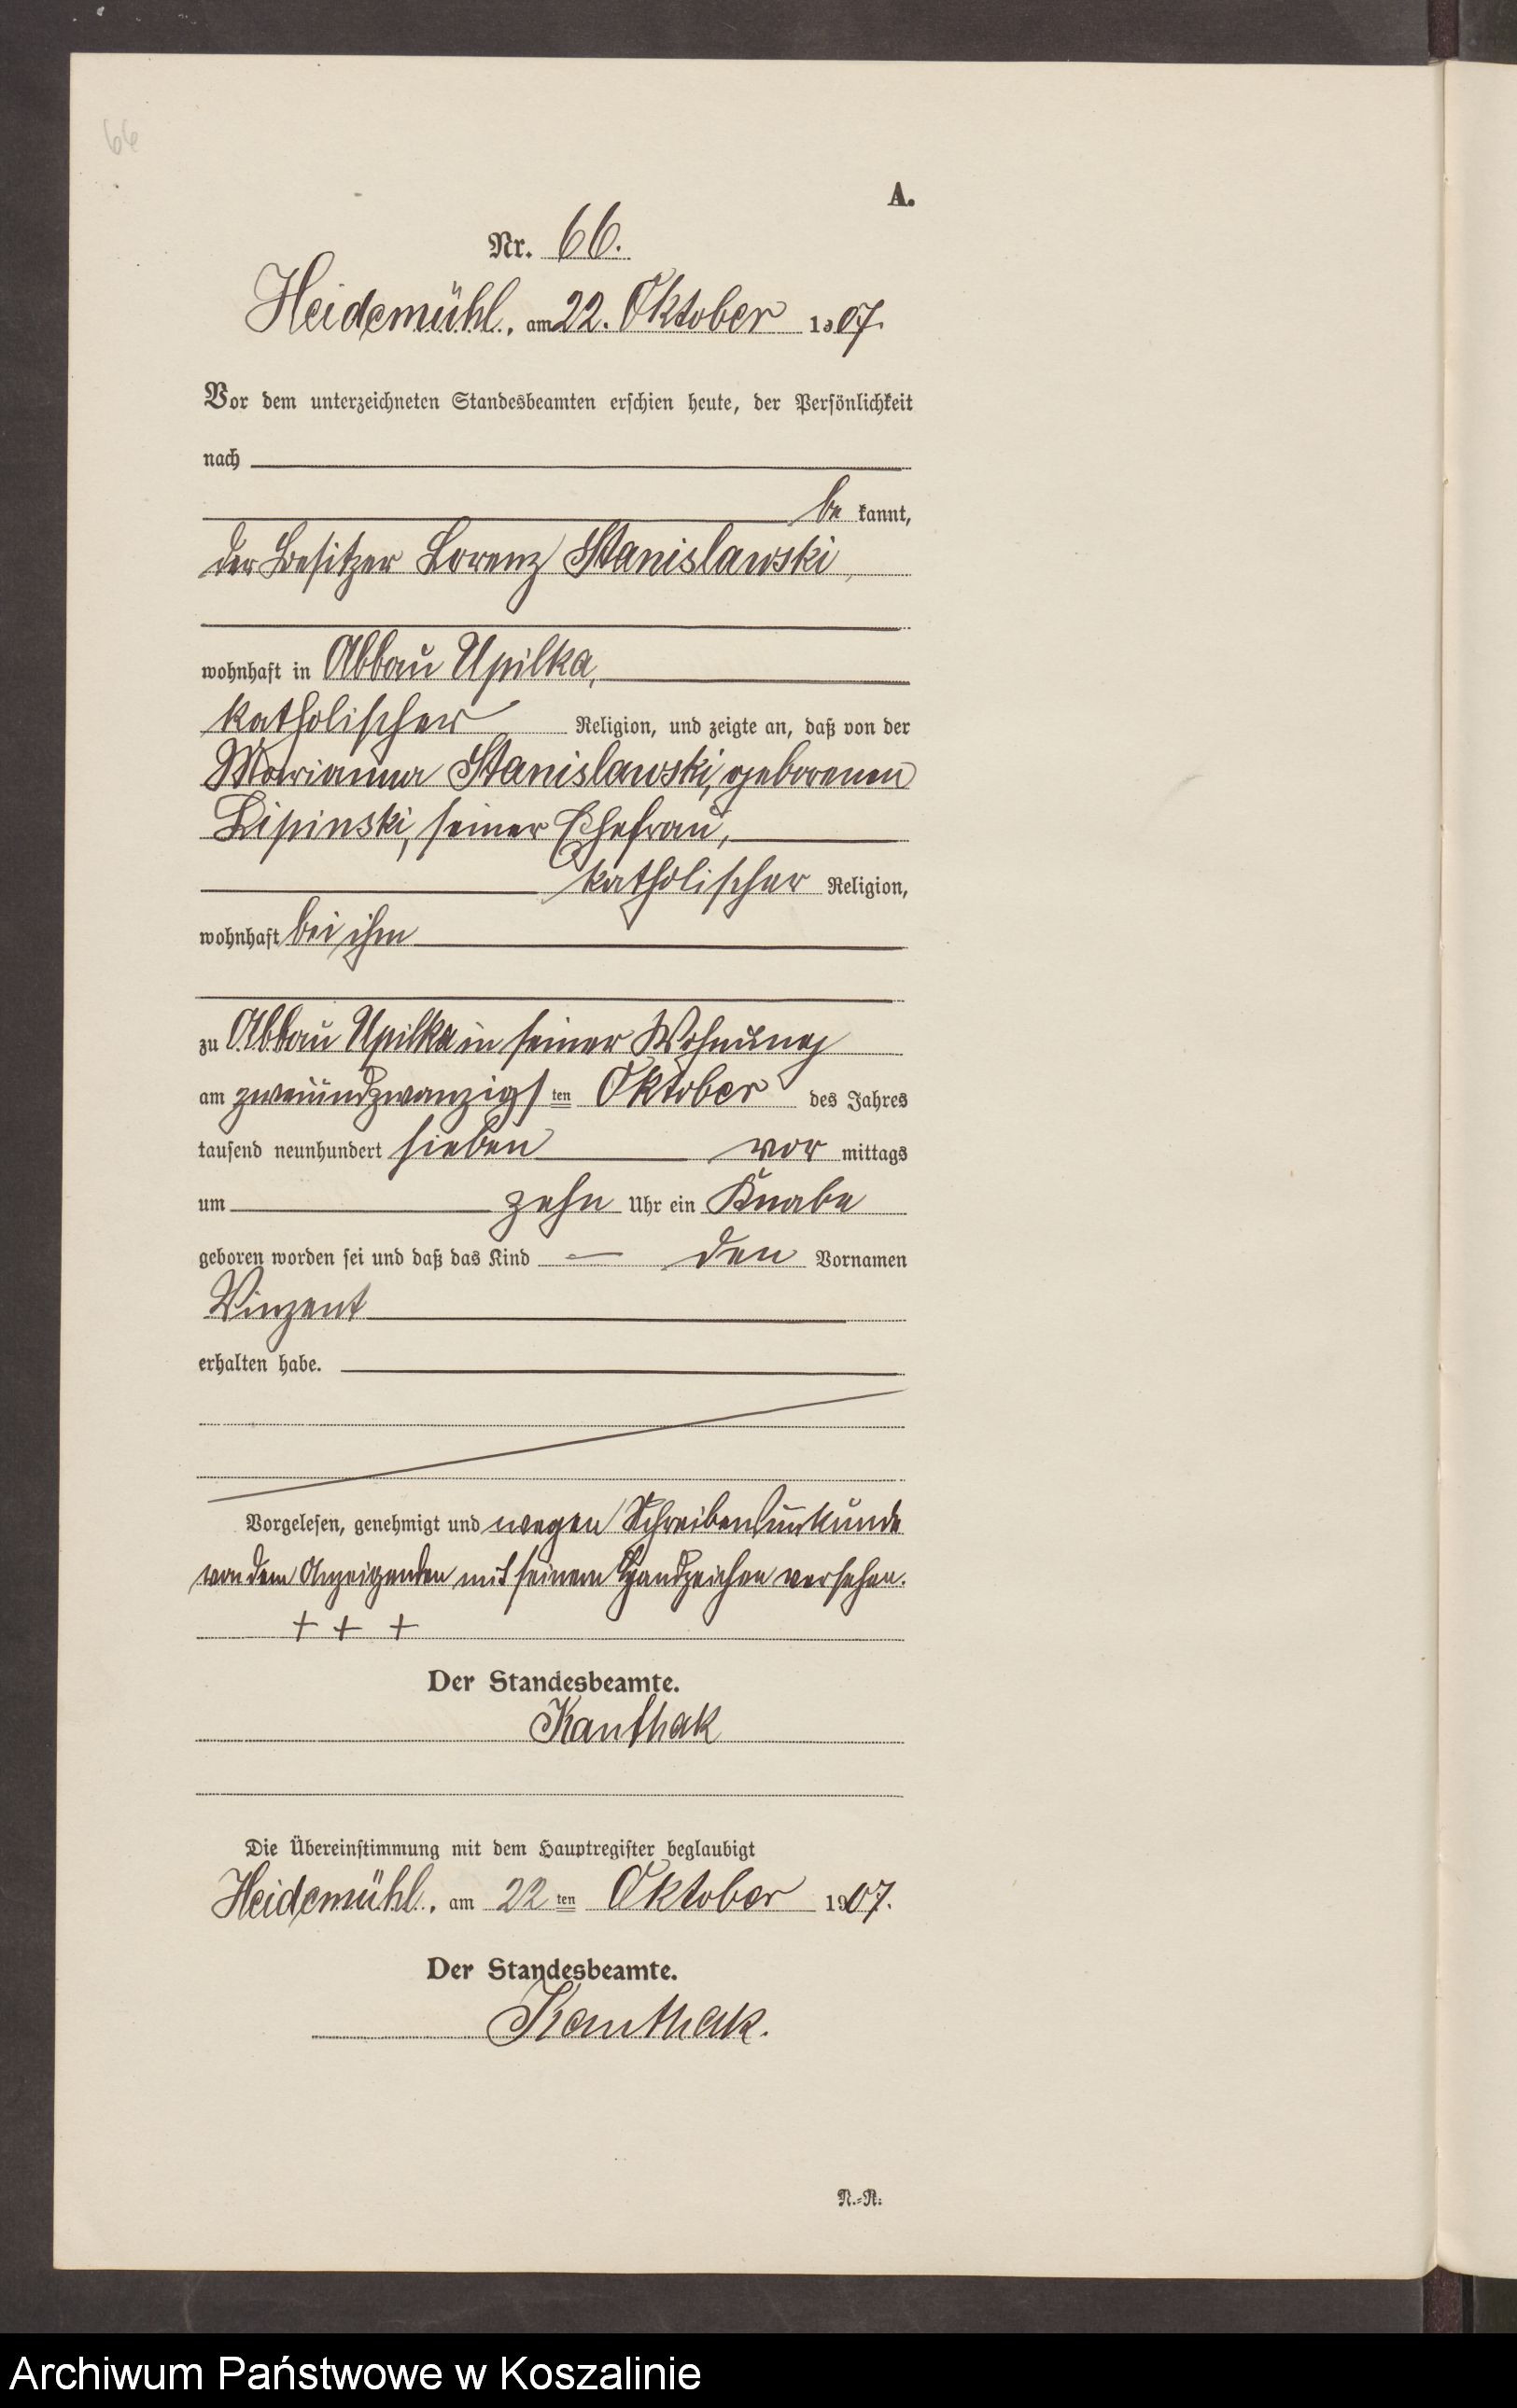 66
A.
Nr. 66.
Heidemühl, am 22. Oktober 1907.
Vor dem unterzeichneten Standesbeamten erschien heute, der Persönlichkeit
nach
be kannt,
der Besitzer Lorenz Stanislawski,
wohnhaft in Abbau Upilka,
katholischer Religion, und zeigte an, daß von der
Marianna Stanislawski, geborenen
Lipinski, seiner Ehefrau,
katholischer Religion,
wohnhaft bei ihm
zu Abbau Upilka in seiner Wohnung
am zweiundzwanzigsten Oktober des Jahres
tausend neunhundert sieben vor mittags
um zehn Uhr ein Knabe
geboren worden sei und daß das Kind — den Vornamen
Vinzent
erhalten habe.
Vorgelesen, genehmigt und wegen Schreibensunkunde
von dem Anzeigenden mit seinem Handzeichen versehen.
+ + +
Der Standesbeamte.
Kanthak
Die Übereinstimmung mit dem Hauptregister beglaubigt
Heidemühl, am 22 ten Oktober 1907.
Der Standesbeamte.
Kanthak.
N.-R.
Archiwum Państwowe w Koszalinie